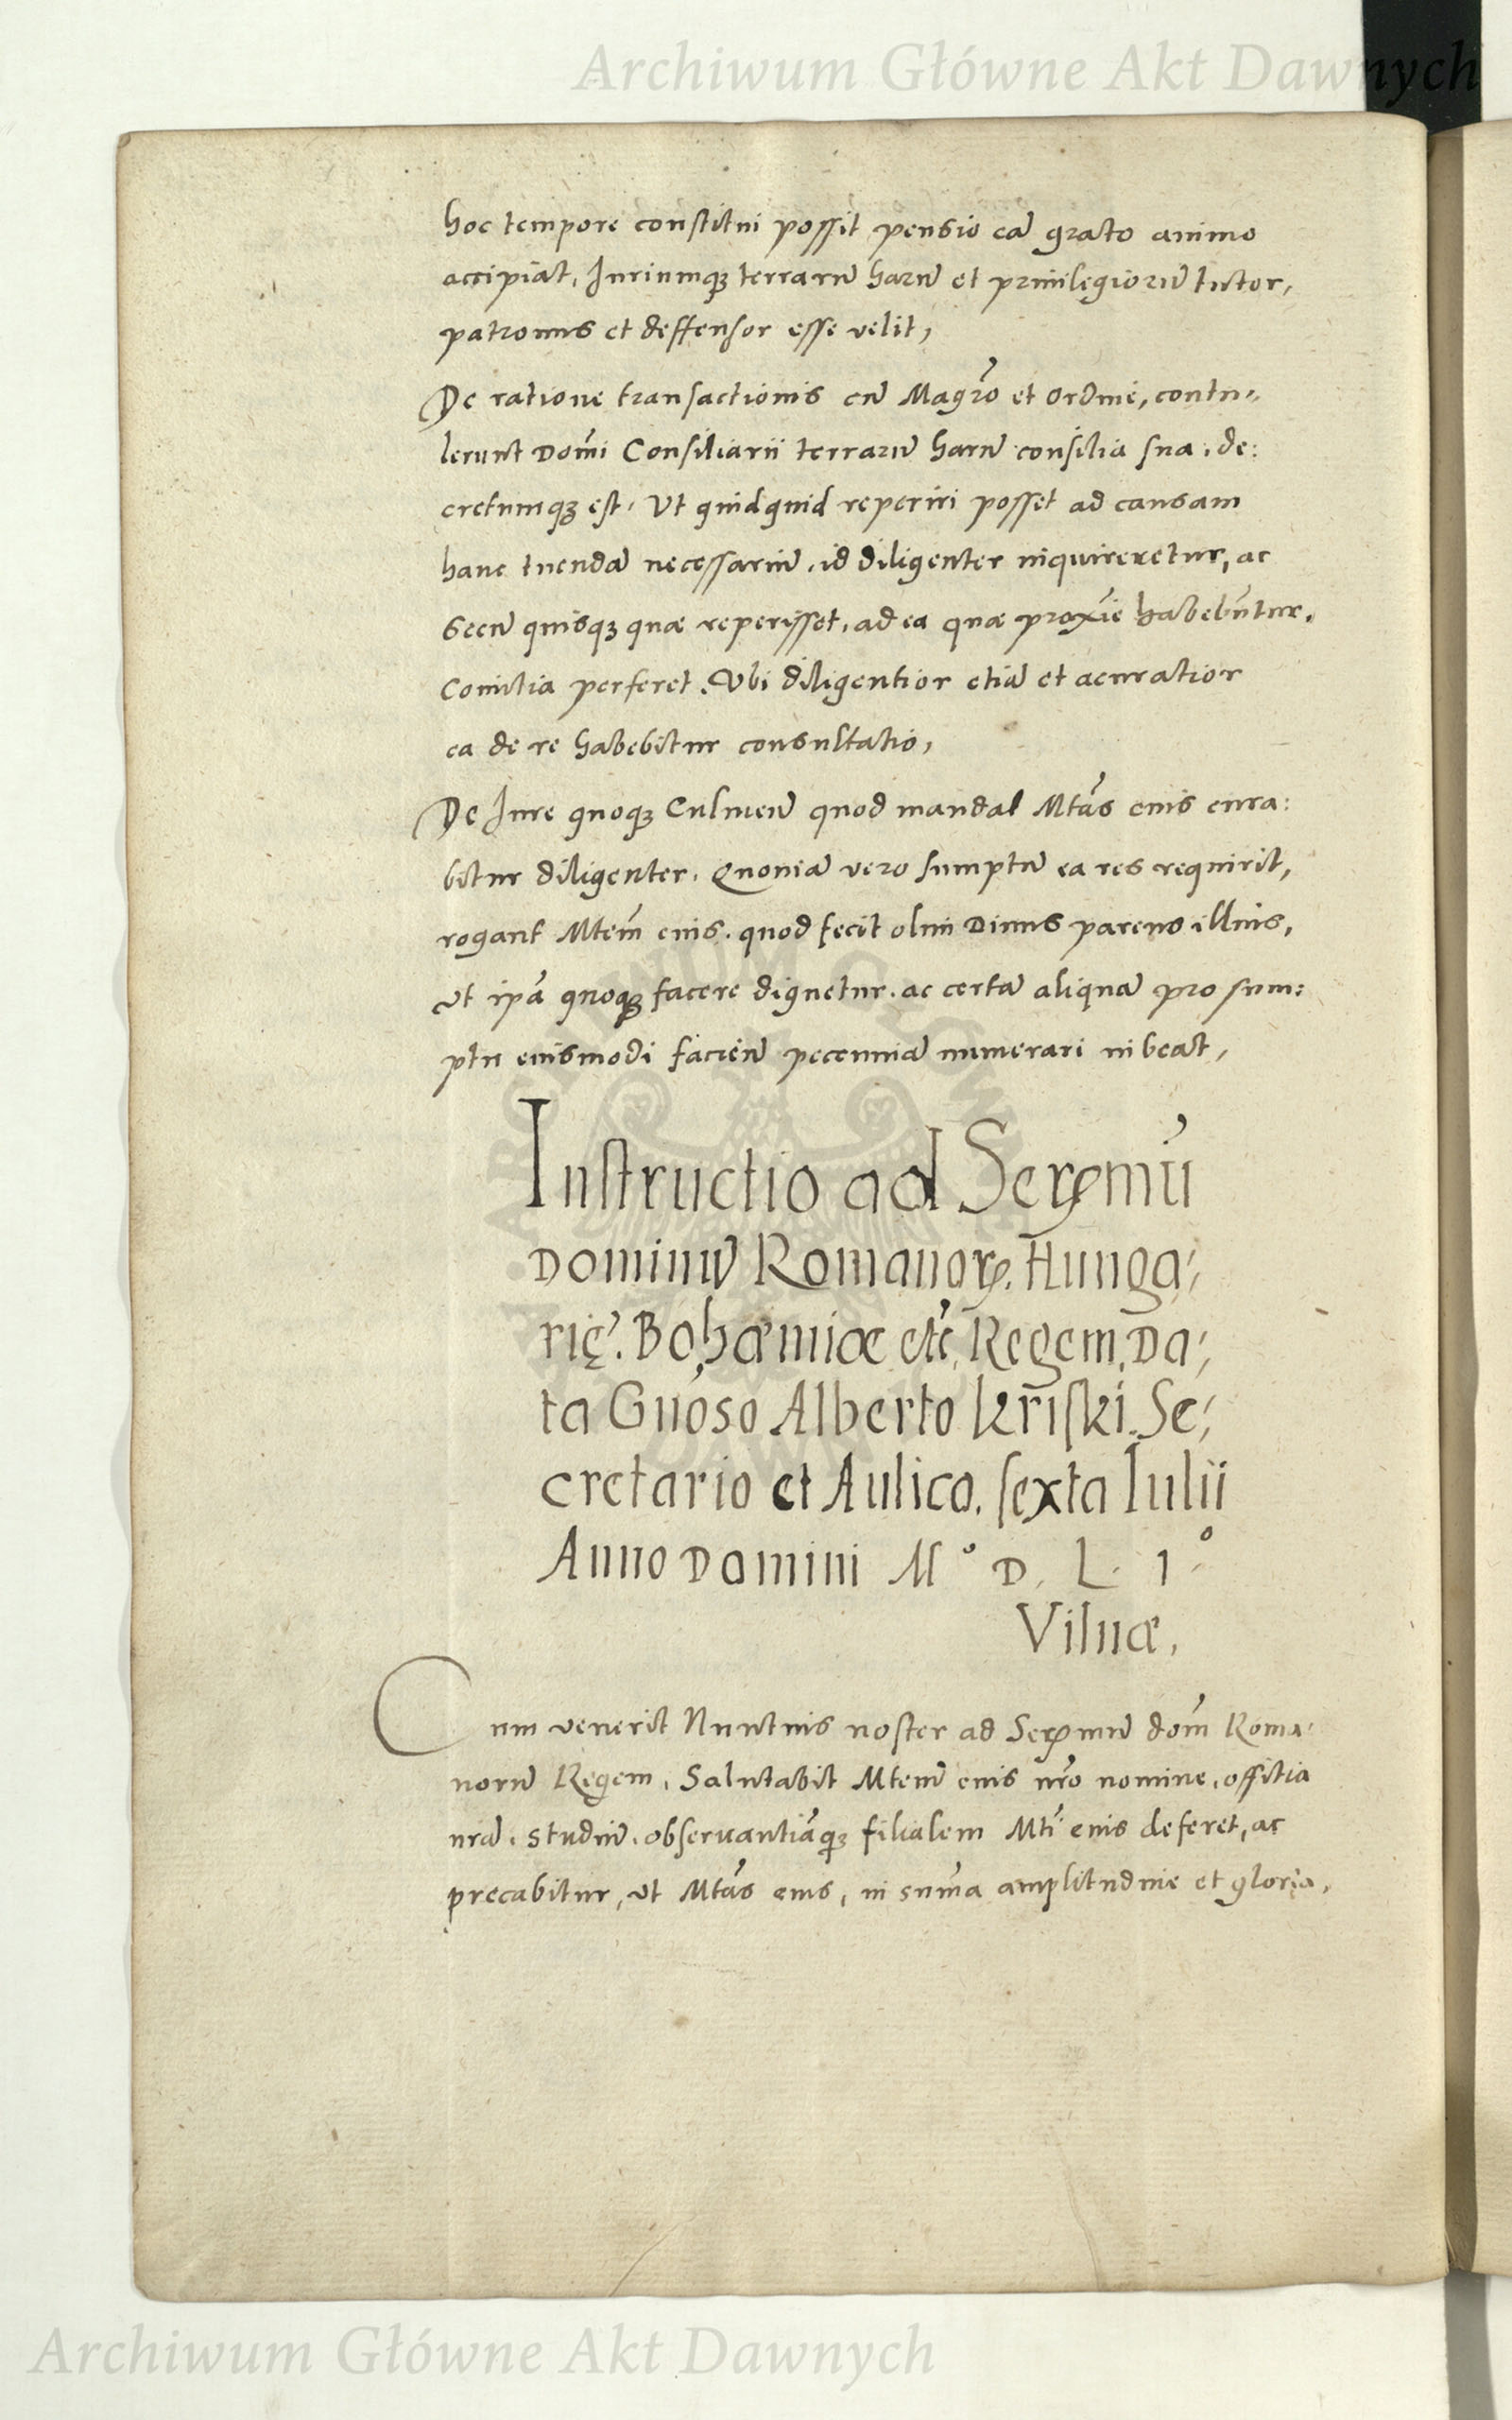 Archiwum Główne Akt Dawnych
hoc tempore constitui possit pensio eā grato animo
accipiat, Juriumqꝫ terrarū harū et priuilegiorū tutor,
patronus et deffensor esse velit,
De ratione transactionis cū Magrō et ordine, contu-
lerunt Domī Consiliarii terrarū harū consilia sua, de:
cretumqꝫ est, Ut quidquid reperiri posset ad causam
hanc tuendā necessariū, id diligenter inquireretur, ac
secū quisqꝫ quæ reperisset, ad ea quæ proxīe habebūtur,
Comitia perferet. Ubi diligentior etiā et acuratior
ea de re habebitur consultatio,
De Jure quoqꝫ Culmeñ quod mandat Mtās eius cura:
bitur diligenter. Quoniā vero sumptū ea res requirit,
rogant Mtēm eius. quod fecit olim Diuus parens illius,
ut ipā quoqꝫ facere dignetur. ac certā aliquā pro sum:
ptu eiusmodi facieñ pecuniā numerari iubeat,
Instructio ad Serꝫmū
Dominū Romanorꝝ. Hunga-
rię. Bohæmiæ etc̄, Regem, Da-
ta Gnōso Alberto kriſki. Se-
cretario et Aulico, sexta Iulii
Anno Domini M° D. L. 1°
Vilnæ,
Cum venerit Nuntius noster ad Serꝫmū dom̄ Roma-
norū Regem, Salutabit Mtem̄ eius nrō nomine, offitia
nrā, studiū, obseruantiāqꝫ filialem Mtī eius deferet, ac
precabitur, ut Mtās eius, in sum̄a amplitudine et gloria,
Archiwum Główne Akt Dawnych